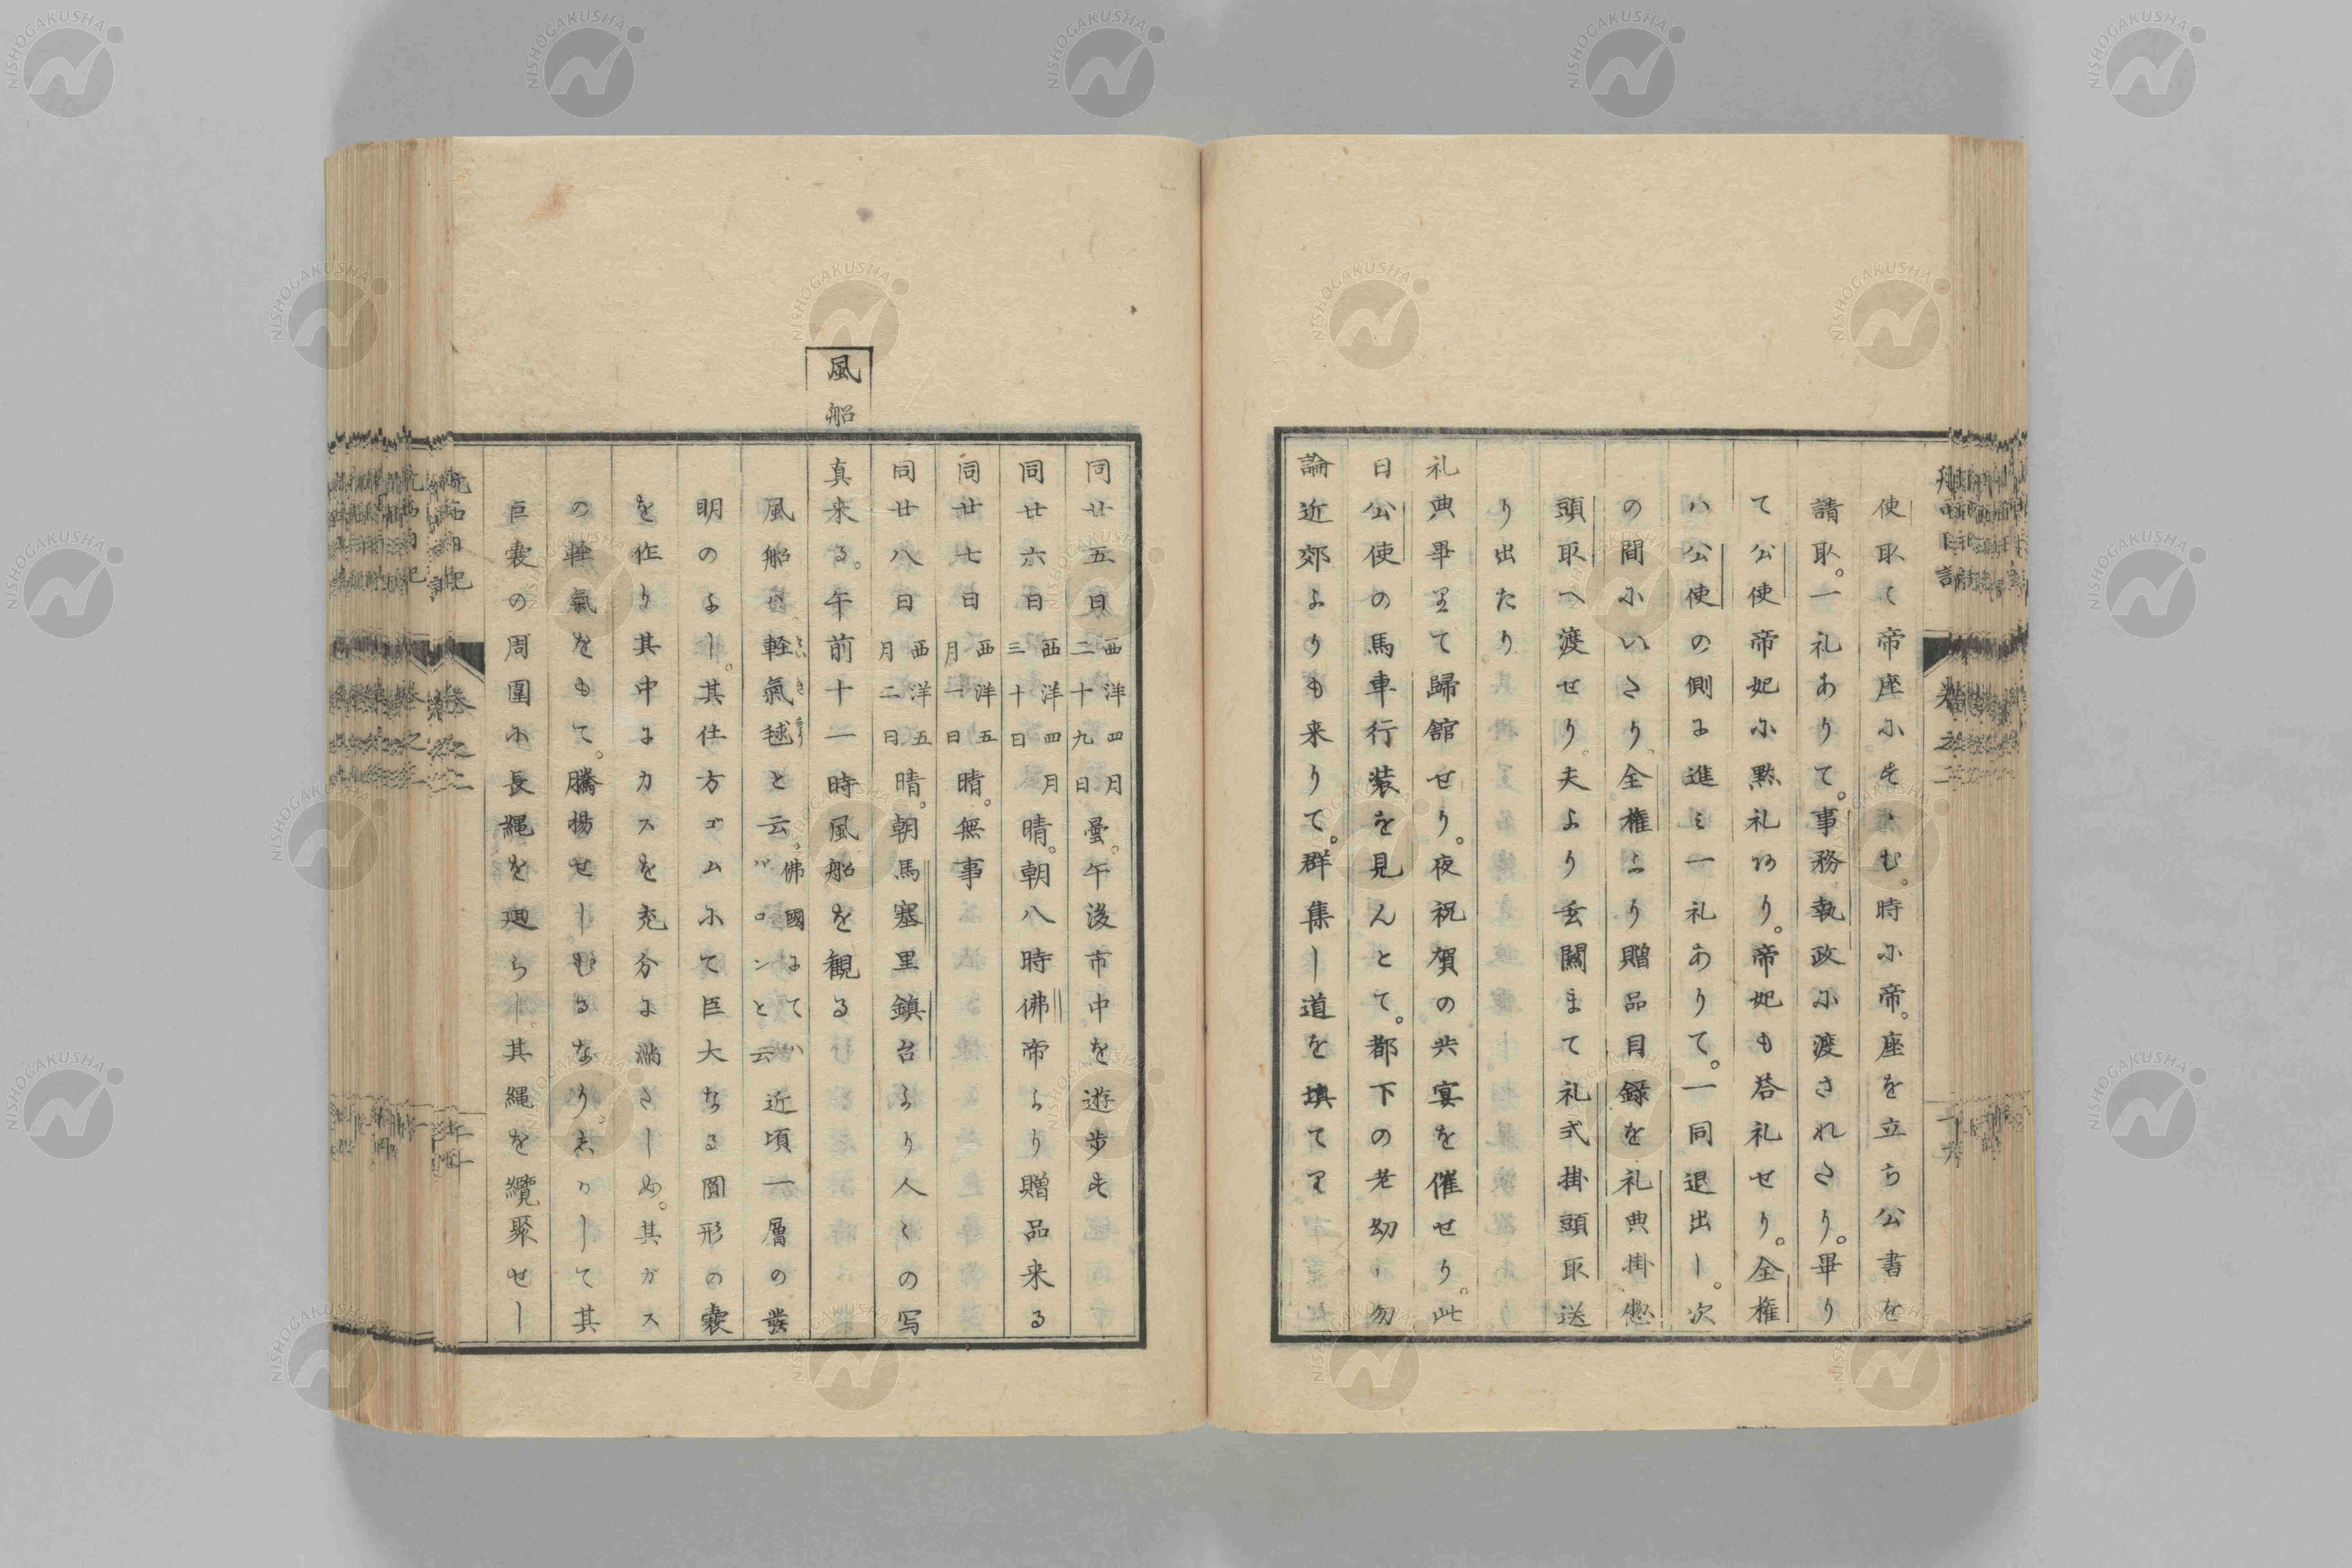 使取く帝座にすゝむ。時に帝。座を立ち公書を
請取。一礼ありて。事務執政に渡されさり。畢り
て公使帝妃に黙礼あり。帝妃も答礼せり。全権
ハ公使の側に進ミ一礼ありて。一同退出し。次
の間にいさり。全権より贈品目録を礼典掛惣
頭取へ渡せり。夫より玄關まて礼式掛頭取送
り出たり。
礼典畢りて歸舘せり。夜祝賀の共宴を催せり。此
日公使の馬車行装を見んとて。都下の老幼ハ勿
論近郊よりも来りて。群集し道を填てり
風船
同廿五日西洋四月二十九日曇。午後市中を遊歩す
同廿六日西洋四月三十日晴。朝八時佛帝より贈品来る
同廿七日西洋五月一日晴。無事
同廿八日西洋五月二日晴。朝馬塞里鎮台より人々の写
真来る。午前十一時風船を観る
風船ハ軽氣毬と云。佛國にてハバロンと云近頃一層の發
明のよし。其仕方ゴムにて巨大なる圓形の嚢
を作り其中にカスを充分に満さしめ。其ガス
の軽氣をもて。騰揚せしむるなり。忩かして其
巨嚢の周圍に長縄を廻らし。其縄を纜聚せし
NISHOGAKUSHA